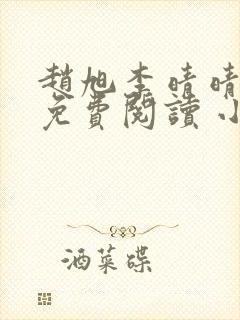 趙旭李晴晴
免費閱讀小
酒菜碟